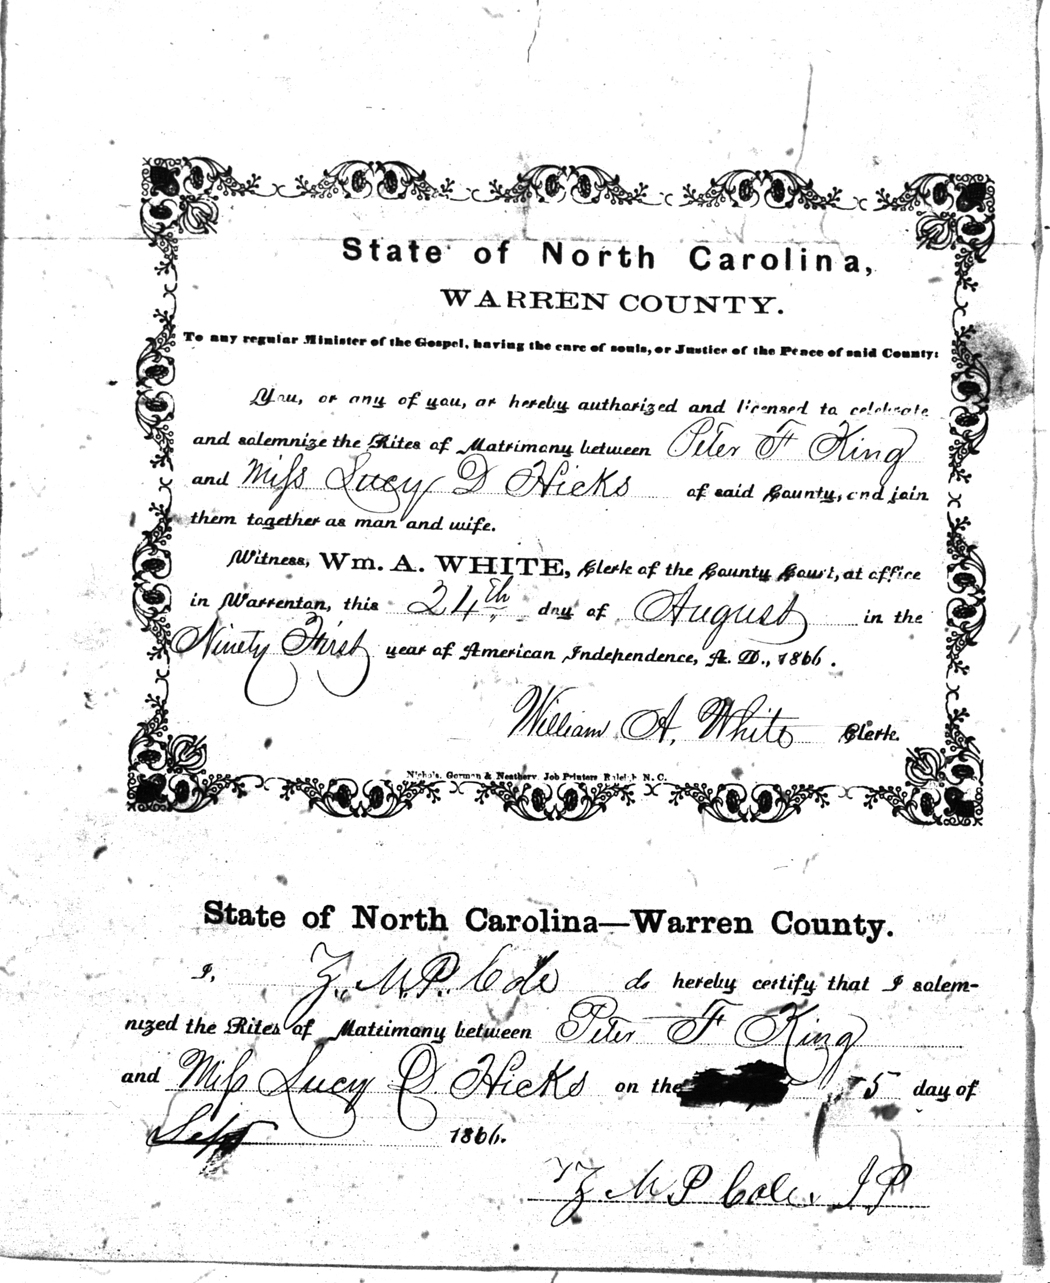 State of North Carolina,
WARREN COUNTY.
To any regular Minister of the Gospel, having the care of souls, or Justice of the Peace of said County:
You, or any of you, ar hereby authorized and licensed to celebrate
and solemnize the Rites of Matrimony between Peter F King
and Miss Lucy D Hicks of said County, and join
them together as man and wife.
Witness, Wm. A. WHITE, Clerk of the County Court, at office
in Warrenton, this 24th day of August in the
Ninety First year of American Independence, A. D., 1866.
William A. White Clerk.
Nichols, Gorman & Neathery, Job Printers Raleigh N. C.
State of North Carolina—Warren County.
I, Z. M. P. Cole do hereby certify that I solem-
nized the Rites of Matrimony between Peter F King
and Miss Lucy D Hicks on the 5 day of
Sept 1866.
Z M P Cole, J P